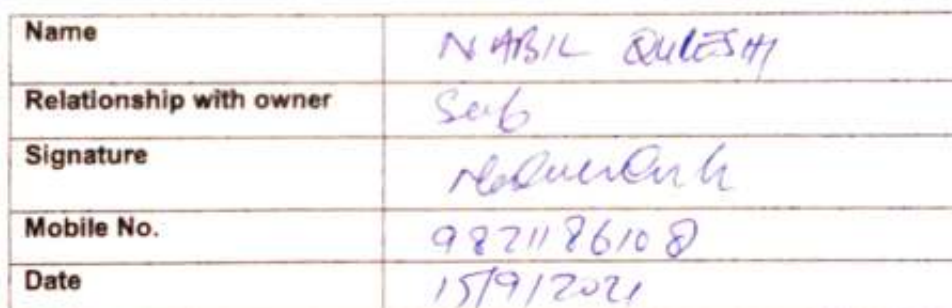 Name NABIL QURESHI
Relationship with owner Self
Signature
Mobile No. 9821186108
Date 15/9/2021